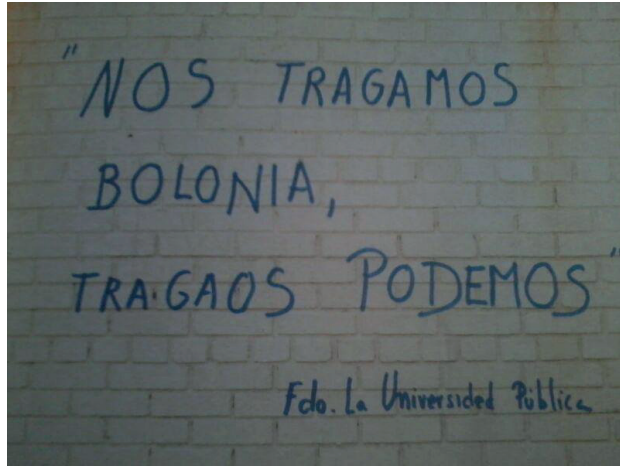 "NOS TRAGAMOS
BOLONIA,
TRA·GAOS PODEMOS"
Fdo. La Universided Pública